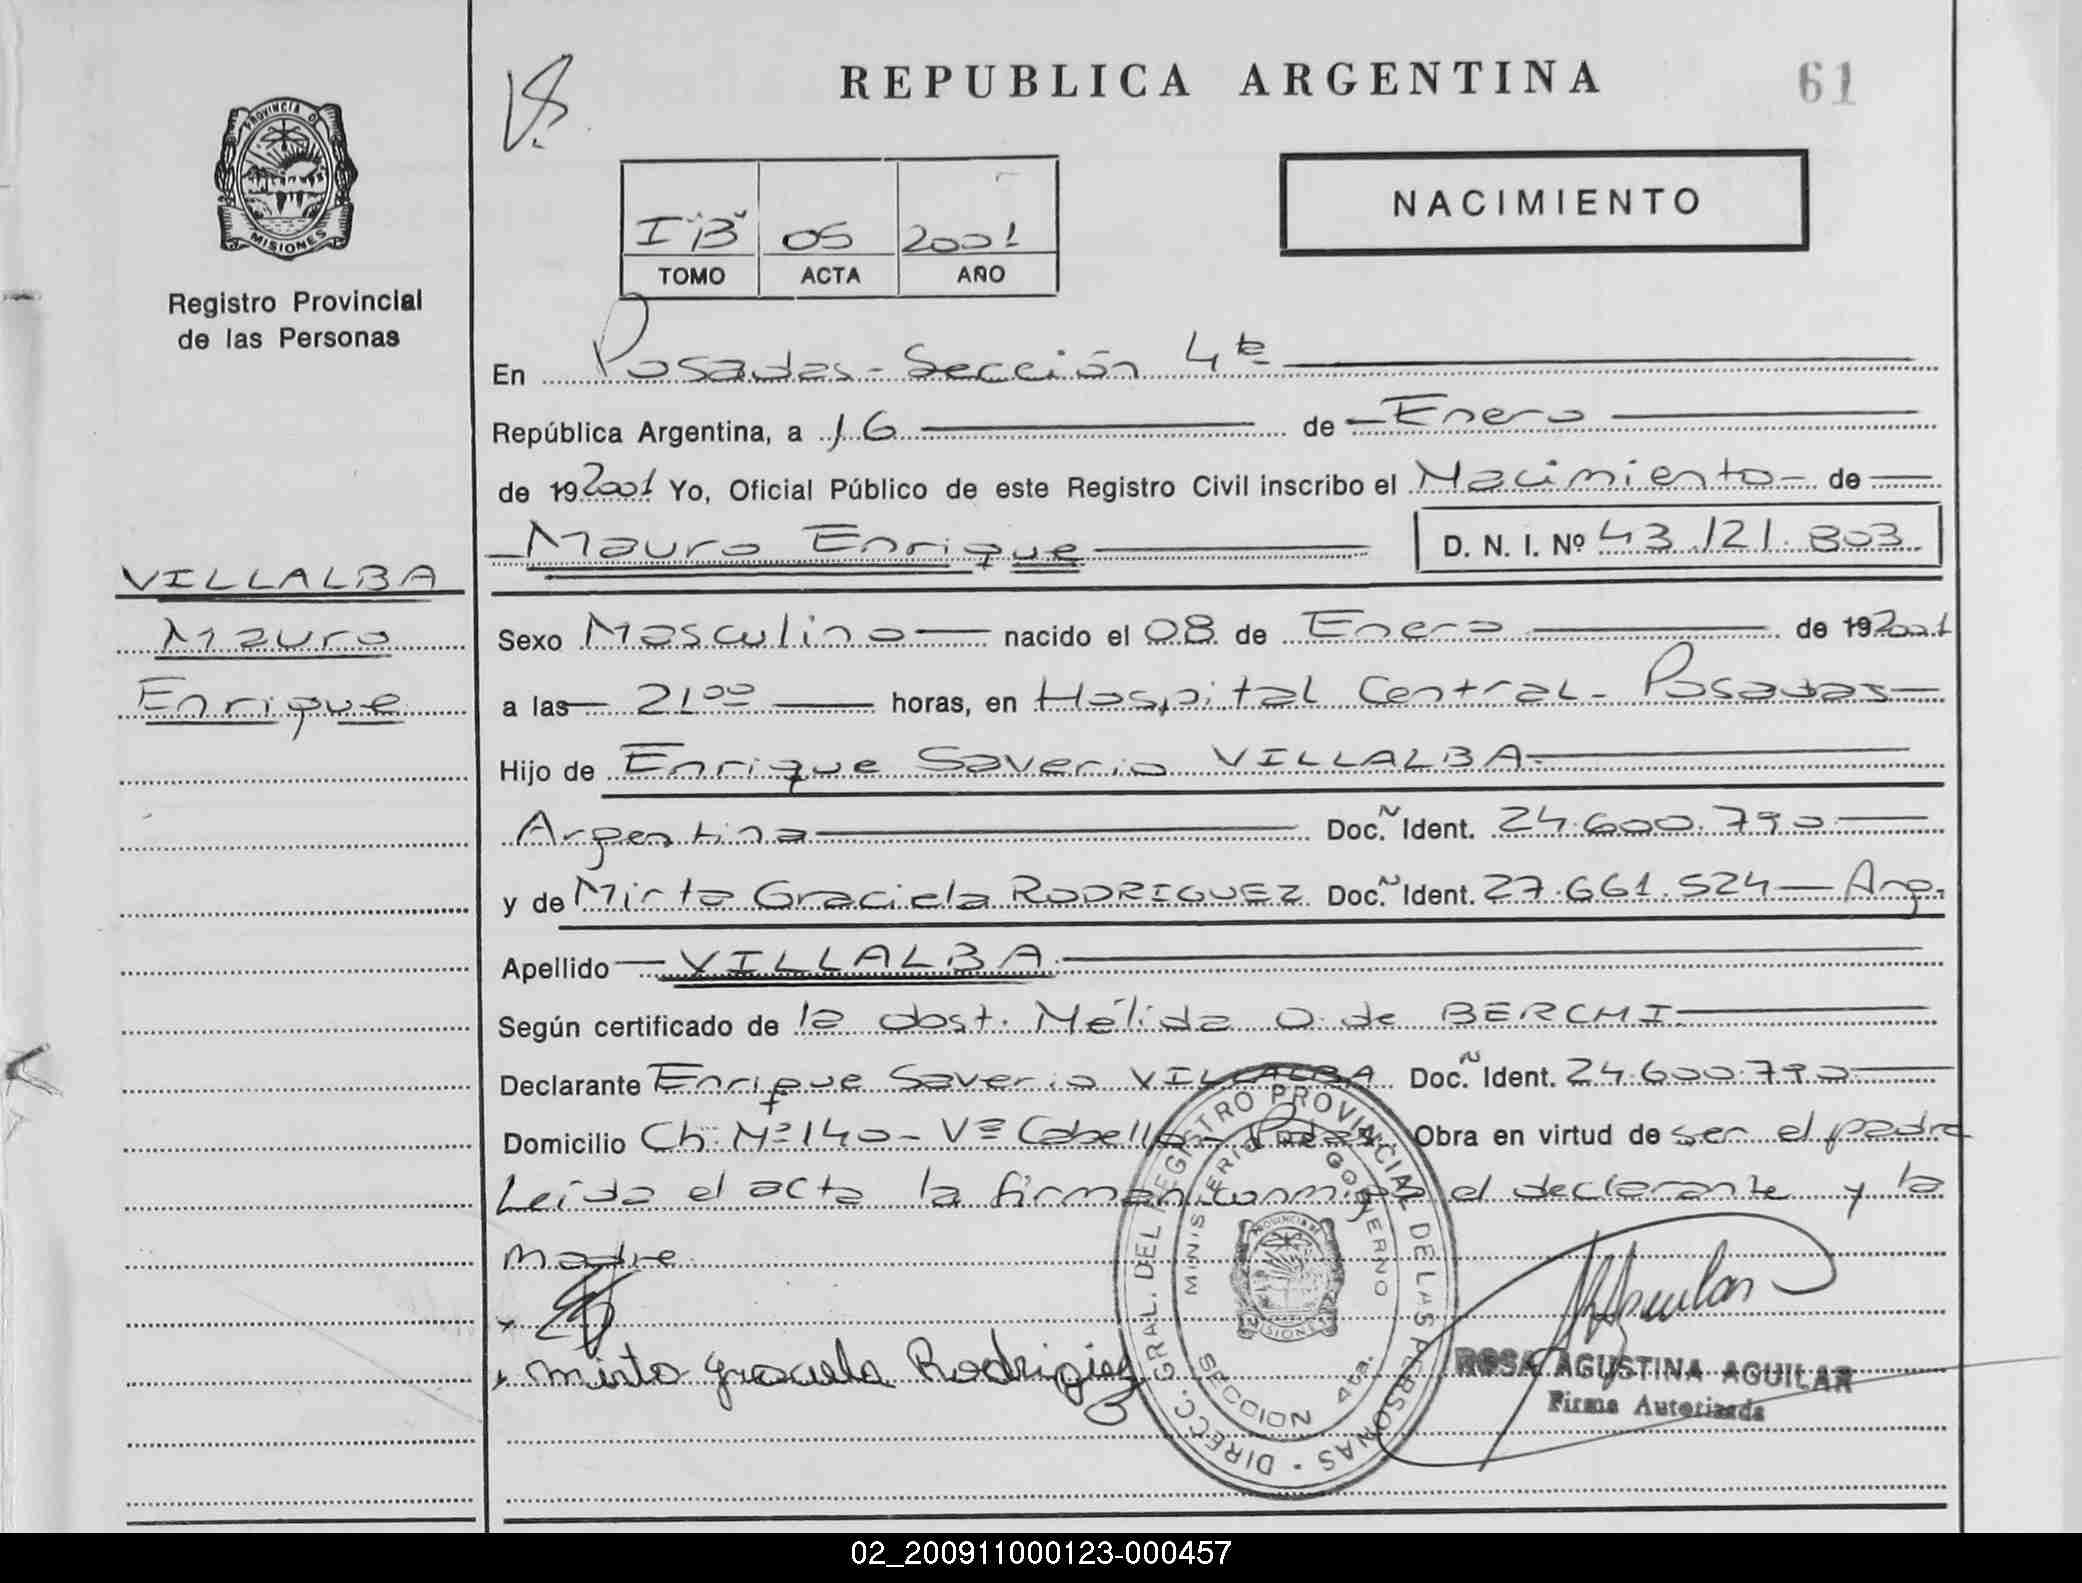 REPUBLICA ARGENTINA
61
PROVINCIA D
MISIONES
Registro Provincial
de las Personas
NACIMIENTO
I "B" 05 2001
TOMO ACTA AÑO
En Posadas - Sección 4ta
República Argentina, a 16 de Enero
de 192001 Yo, Oficial Público de este Registro Civil inscribo el Nacimiento - de
Mauro Enrique D. N. I. Nº 43.121.803
VILLALBA
Mauro
Enrique
Sexo Masculino nacido el 08 de Enero de 192001
a las 21 00 horas, en Hospital Central - Posadas
Hijo de Enrique Saverio VILLALBA
Argentina Doc. Ident. 24.600.790
y de Mirta Graciela RODRIGUEZ Doc. Ident. 27.661.524 - Arg.
Apellido VILLALBA
Según certificado de la obst. Nélida O. de BERCHI
Declarante Enrique Saverio VILLALBA Doc. Ident. 24.600.790
Domicilio Ch. Nº 140 - Vº Cabello - Pdas. Obra en virtud de ser el padre
Leída el acta la firman conmigo el declarante y la
madre
Mirta Graciela Rodriguez
DIRECC. GRAL. DEL REGISTRO PROVINCIAL DE LAS PERSONAS
MINISTERIO DE GOBIERNO
PROVINCIA DE
MISIONES
SECCION 4ta.
RAguilar
ROSA AGUSTINA AGUILAR
Firma Autorizada
02_200911000123-000457